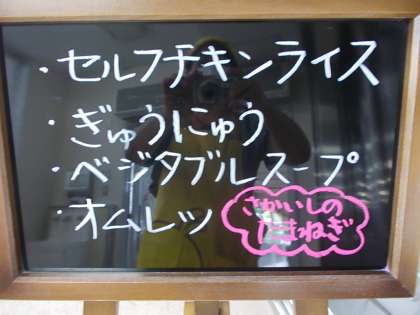 ・セルフチキンライス
・ぎゅうにゅう
・ベジタブルスープ
・オムレツ
さかいしの
たまねぎ